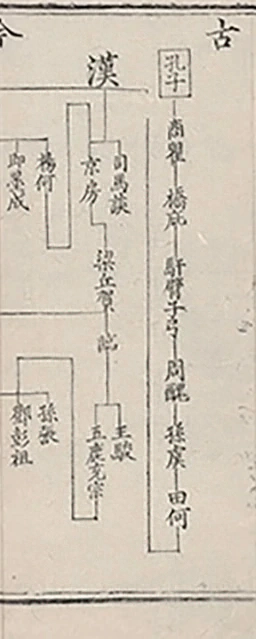 古
孔子
商瞿
橋庇
馯臂子弓
周醜
孫虞
田何
漢
司馬談
京房
梁丘賀
臨
王駿
五鹿充宗
楊何
即墨成
孫張
鄧彭祖
今